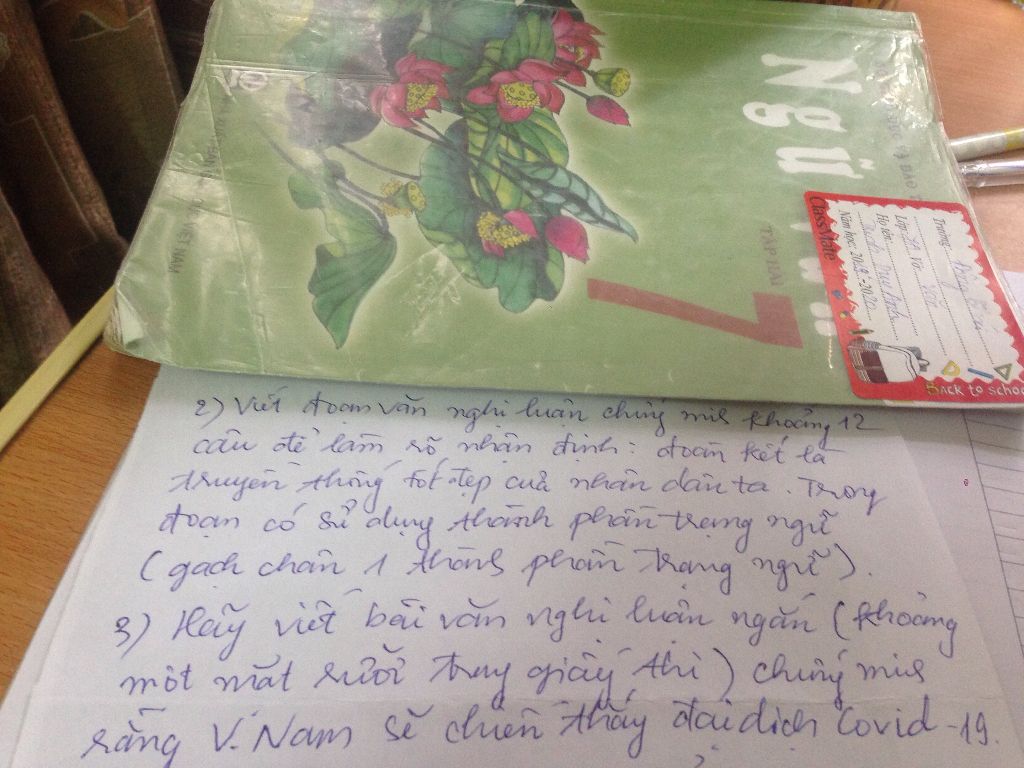 Ngữ
TẬP HAI
7
VIỆT NAM
Class Mate
Trường:
Lớp: Vở: Văn
Họ tên: Duy Anh
Năm học: 2019 - 2020
BACK to school
2) Viết đoạn văn nghị luận chứng minh khoảng 12
câu để làm rõ nhận định: đoàn kết là
truyền thống tốt đẹp của nhân dân ta. Trong
đoạn có sử dụng thành phần trạng ngữ
(gạch chân 1 thành phần trạng ngữ).
3) Hãy viết bài văn nghị luận ngắn (khoảng
một mặt rưỡi trang giấy thi) chứng minh
rằng V. Nam sẽ chiến thắng đại dịch Covid-19.